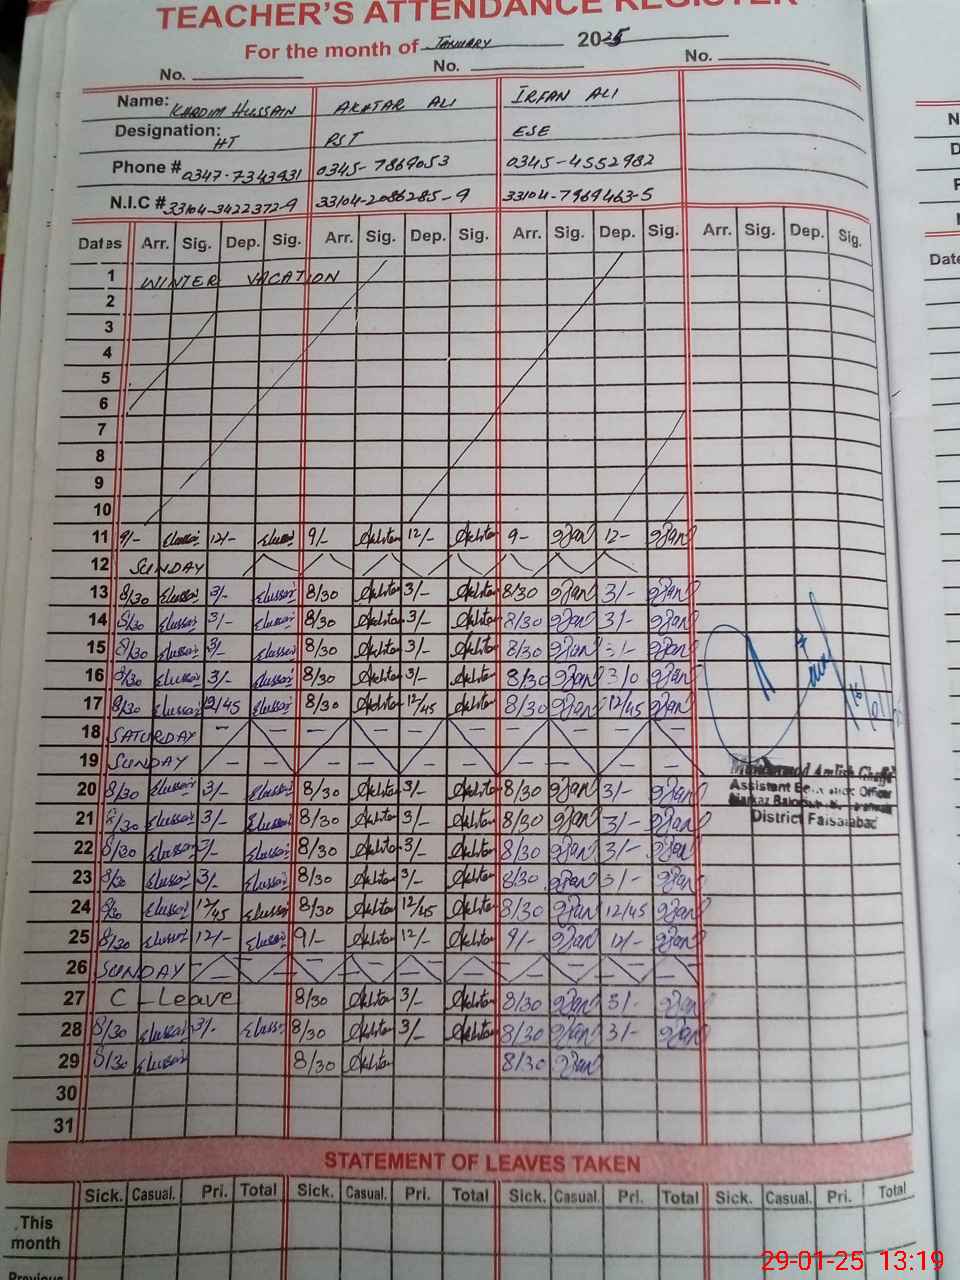 TEACHER'S ATTENDANCE REGISTER
For the month of January 2025
No. No. No.
Name: KHADIM HUSSAIN AKHTAR ALI IRFAN ALI
Designation: HT PST ESE
Phone # 0347-7343931 0345-7869053 0345-4552982
N.I.C # 33104-3422372-9 33104-2086285-9 33104-7969463-5
Dates Arr. Sig. Dep. Sig. Arr. Sig. Dep. Sig. Arr. Sig. Dep. Sig. Arr. Sig. Dep. Sig.
1 WINTER VACATION
2
3
4
5
6
7
8
9
10
11 9/- 12/- 9/- Akhtar 12/- Akhtar 9- Irfan 12- Irfan
12 SUNDAY
13 8/30 3/- 8/30 Akhtar 3/- Akhtar 8/30 Irfan 3/- Irfan
14 8/30 3/- 8/30 Akhtar 3/- Akhtar 8/30 Irfan 3/- Irfan
15 8/30 3/- 8/30 Akhtar 3/- Akhtar 8/30 Irfan 3/- Irfan
16 8/30 3/- 8/30 Akhtar 3/- Akhtar 8/30 Irfan 3/0 Irfan
17 8/30 12/45 8/30 Akhtar 12/45 Akhtar 8/30 Irfan 12/45 Irfan
18 SATURDAY
19 SUNDAY
20 8/30 3/- 8/30 Akhtar 3/- Akhtar 8/30 Irfan 3/- Irfan
Assistant Officer
21 8/30 3/- 8/30 Akhtar 3/- Akhtar 8/30 Irfan 3/- Irfan
District Faisalabad
22 8/30 3/- 8/30 Akhtar 3/- Akhtar 8/30 Irfan 3/- Irfan
23 8/30 3/- 8/30 Akhtar 3/- Akhtar 8/30 Irfan 3/- Irfan
24 8/30 12/45 8/30 Akhtar 12/45 Akhtar 8/30 Irfan 12/45 Irfan
25 8/30 12/- 9/- Akhtar 12/- Akhtar 9/- Irfan 12/- Irfan
26 SUNDAY
27 C-Leave 8/30 Akhtar 3/- Akhtar 8/30 Irfan 3/- Irfan
28 8/30 3/- 8/30 Akhtar 3/- Akhtar 8/30 Irfan 3/- Irfan
29 8/30 8/30 Akhtar 8/30 Irfan
30
31
STATEMENT OF LEAVES TAKEN
Sick. Casual. Pri. Total Sick. Casual. Pri. Total Sick. Casual. Pri. Total Sick. Casual. Pri. Total
This month
Previous
29-01-25 13:19